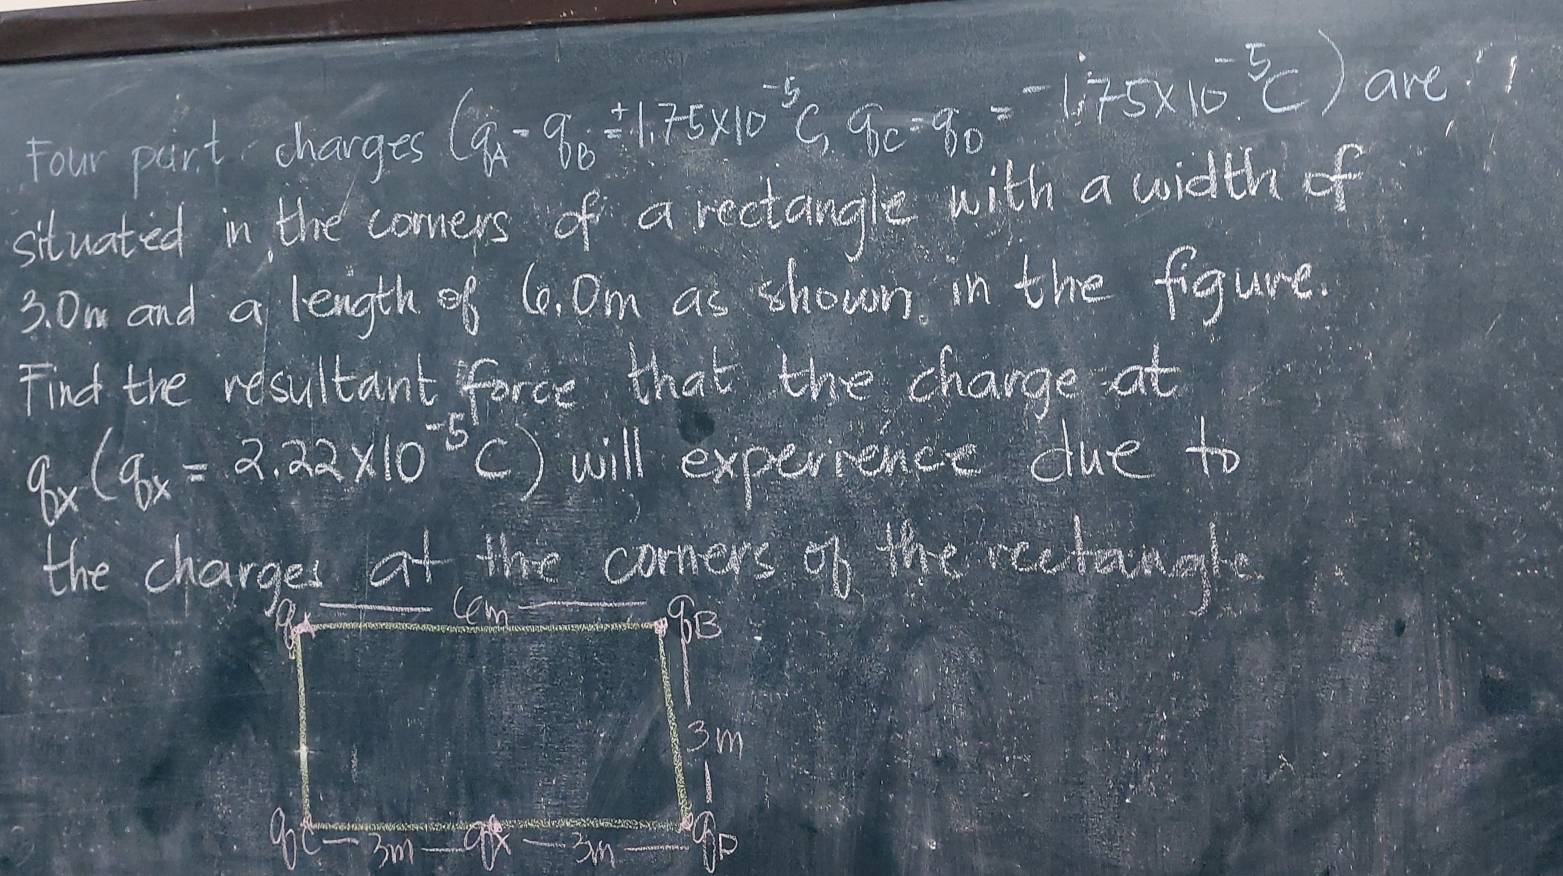 Four point charges (qA = qB = +1.75×10⁻⁵C, qC = qD = -1.75×10⁻⁵C) are
situated in the corners of a rectangle with a width of
3.0m and a length of 6.0m as shown in the figure.
Find the resultant force that the charge at
qx (qx = 2.22×10⁻⁵C) will experience due to
the charges at the corners of the rectangle.
6m
qB
3m
qC 3m qx 3m qD